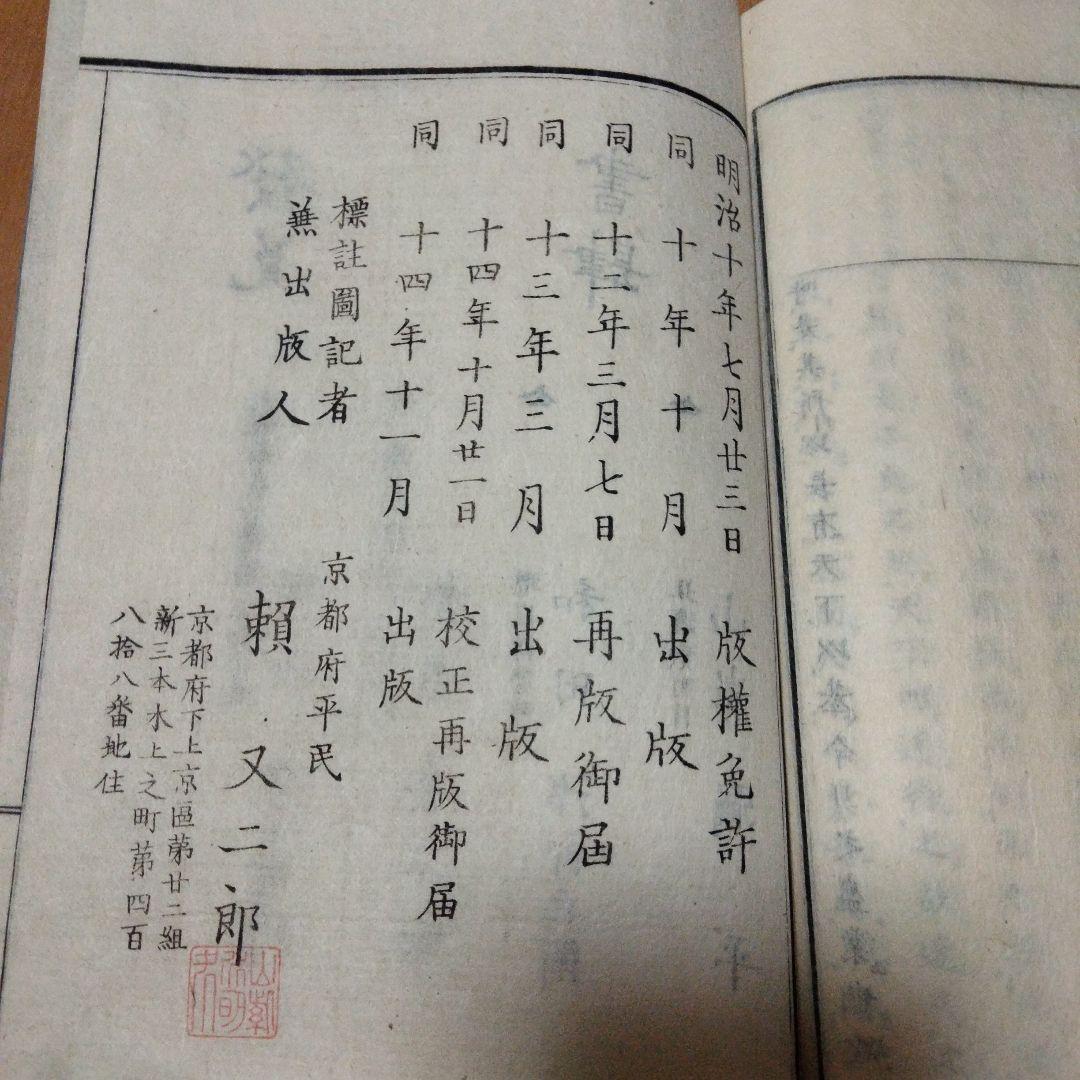 明治十年七月廿三日 版權免許
同 十年十月 出版
同 十二年三月七日 再版御届
同 十三年三月 出版
同 十四年十月廿一日 校正再版御届
同 十四年十一月 出版
標註圖記者
兼出版人
京都府平民
賴又二郎
京都府下上京區第廿二組
新三本木上之町第四百
八拾八番地住